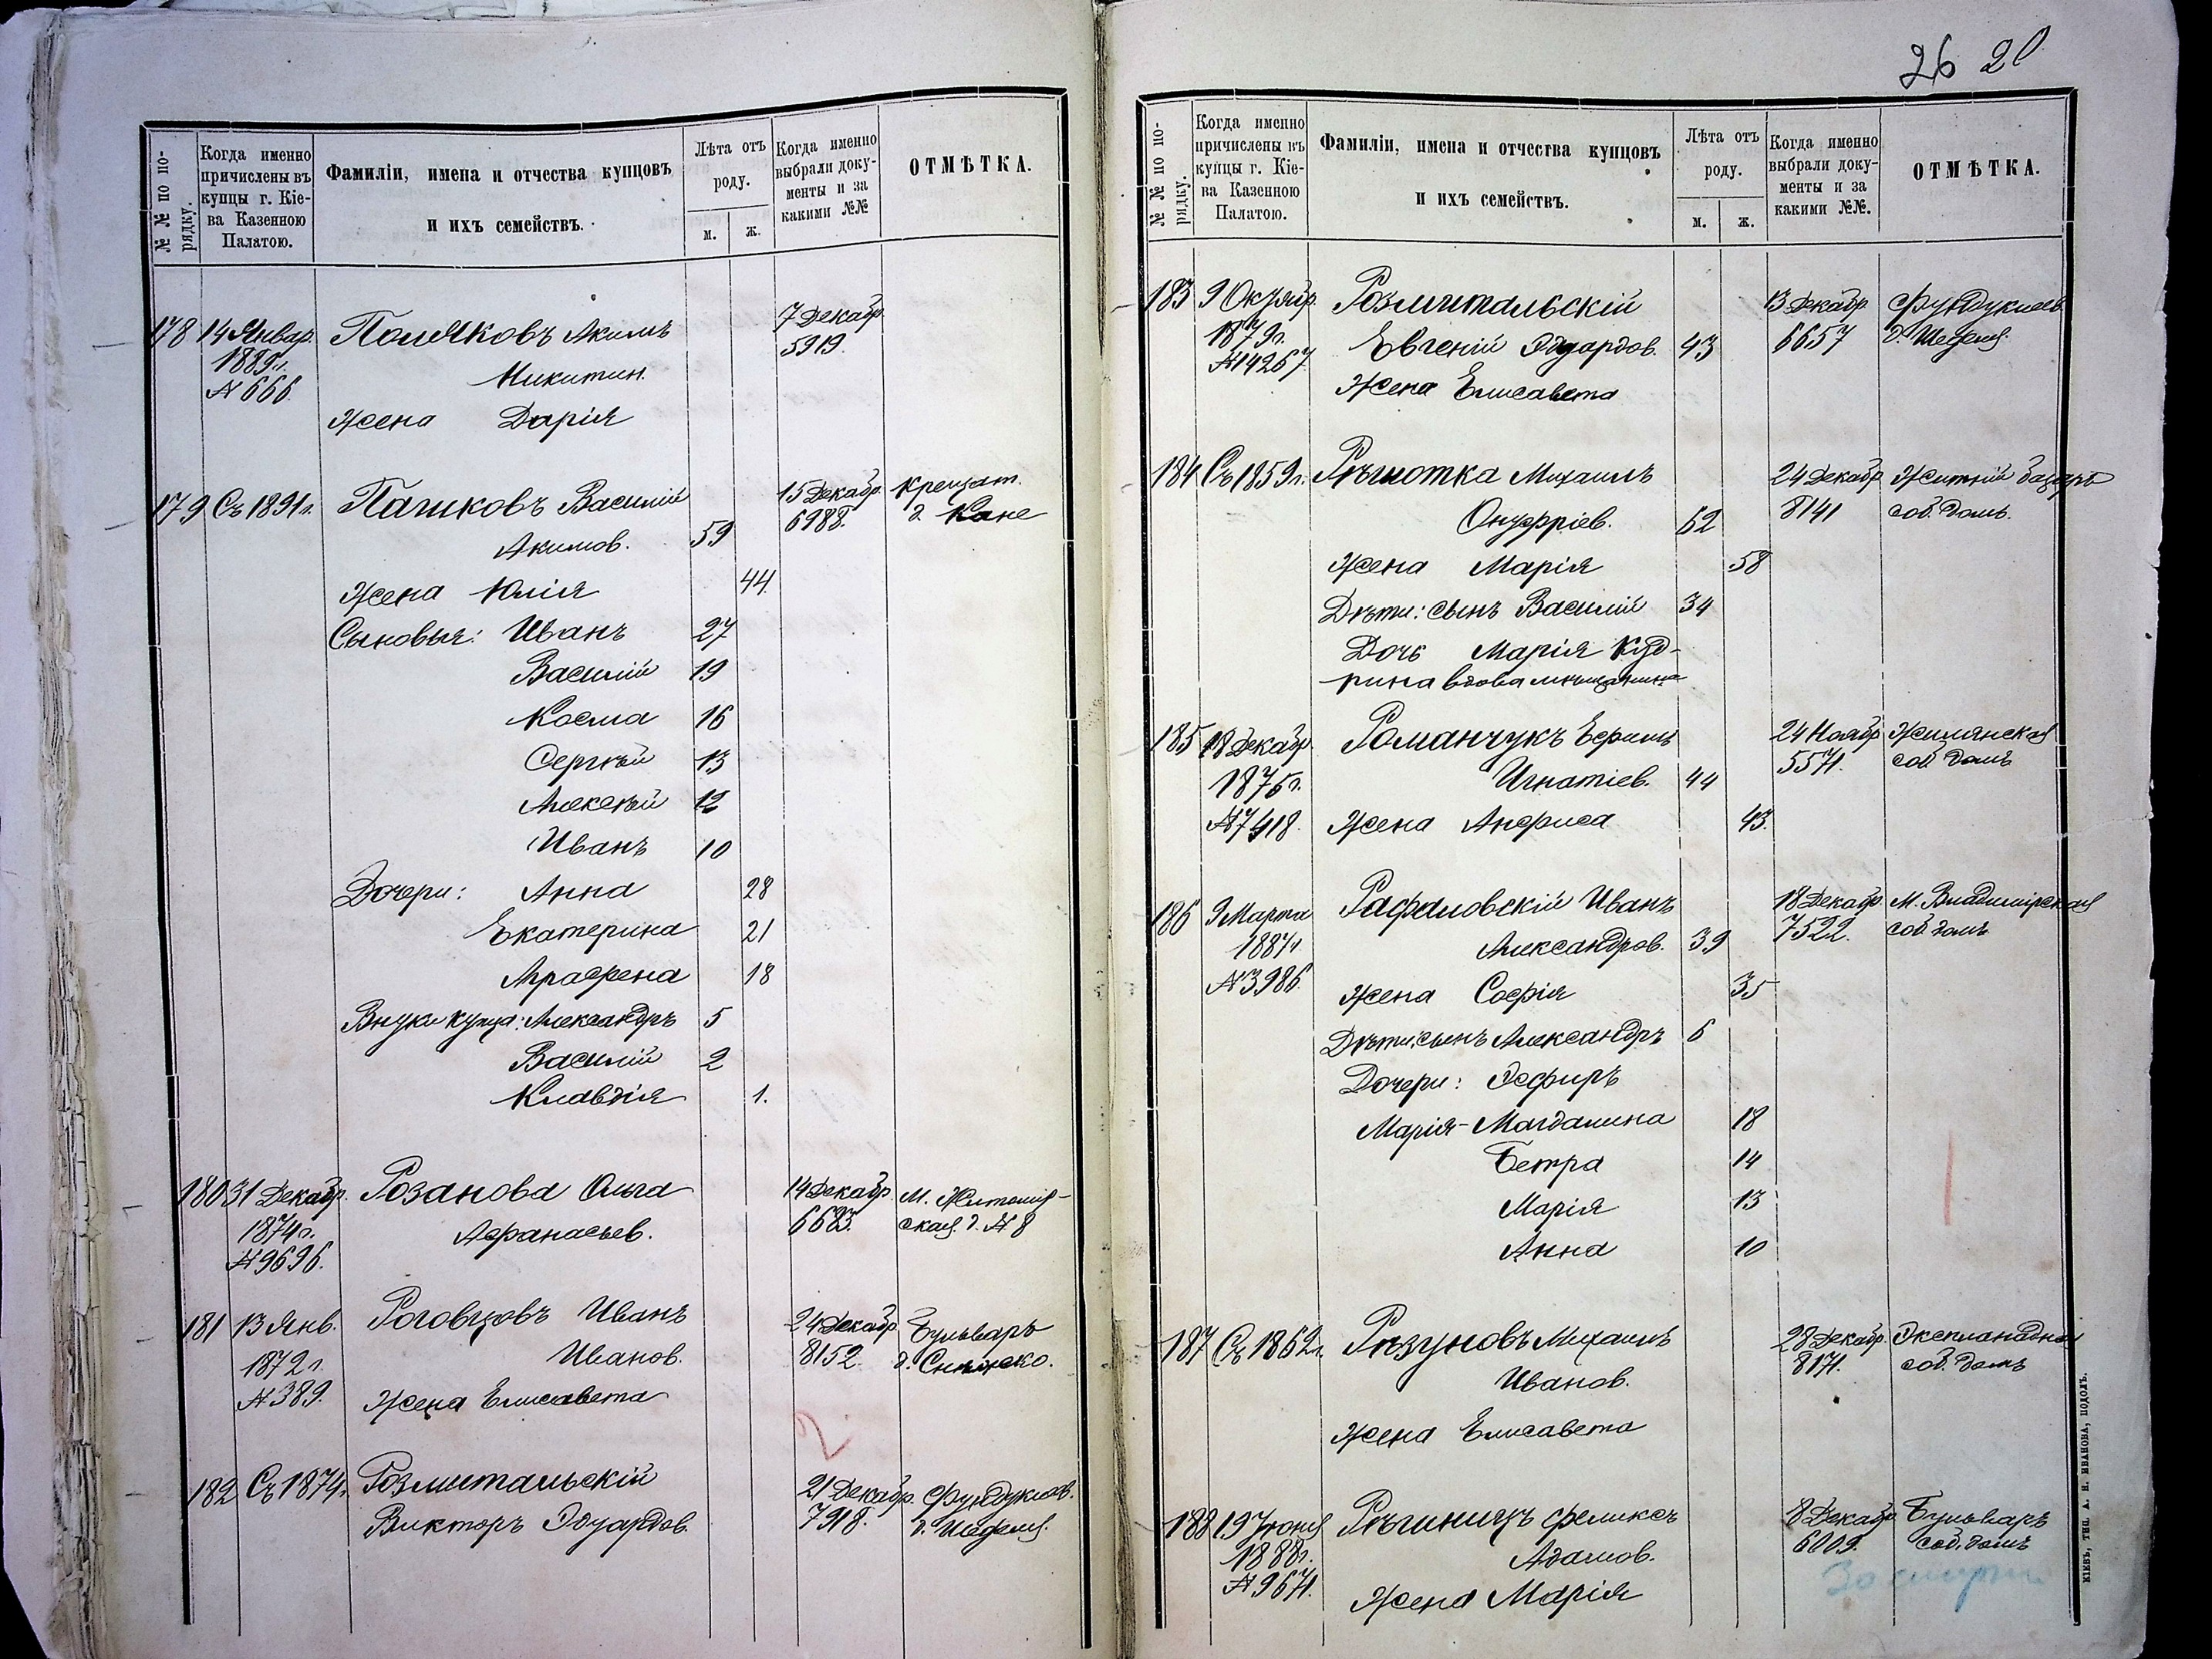 26 20
№ № по по-
рядку.
Когда именно
причислены въ
купцы г. Кіе-
ва Казенною
Палатою.
Фамиліи, имена и отчества купцовъ
и ихъ семействъ.
Лѣта отъ
роду.
м. ж.
Когда именно
выбрали доку-
менты и за
какими №№
ОТМѢТКА.
178 14 Январ. Поляковъ Акимъ 7 Декабр.
1889г. Никитин. 5919.
№ 666
Жена Дарія
179 Съ 1891г. Пашковъ Василій 15 Декабр. Крещат.
Акимов. 59 6988. д. Кане
Жена Юлія 44.
Сыновья: Иванъ 27
Василій 19
Косма 16
Сергѣй 13
Алексѣй 12
Иванъ 10
Дочери: Анна 28
Екатерина 21
Аграфена 18
Внуки купца: Александръ 5
Василій 2
Клавдія 1.
180 31 Декабр. Розанова Ольга 14 Декабр. М. Житомір-
1874г. Афанасьев. 6683. ская д. № 8
№ 9696.
181 13 Янв. Роговцовъ Иванъ 24 Декабр. Бульваръ
1872г. Иванов. 8152. д.
№ 389. Жена Елисавета
2
182 Съ 1874г. Розмитальскій 21 Декабр. Фундуклеев.
Викторъ Эдуардов. 7918. д.
№ № по по-
рядку.
Когда именно
причислены въ
купцы г. Кіе-
ва Казенною
Палатою.
Фамиліи, имена и отчества купцовъ
и ихъ семействъ.
Лѣта отъ
роду.
м. ж.
Когда именно
выбрали доку-
менты и за
какими №№.
ОТМѢТКА.
183 9 Октябр. Розмитальскій 13 Декабр. Фундуклеев.
1879г. Евгеній Эдуардов. 43 6657 д.
№ 14267 Жена Елисавета
184 Съ 1859г. Рѣшотка Михаилъ 24 Декабр. Житній базаръ
Онуфріев. 62 8141 соб. домъ.
Жена Марія 58
Дѣти: сынъ Василій 34
Дочь Марія Куд-
рина вдова мѣщанина
185 18 Декабр. Романчукъ Ефимъ 24 Ноябр. Жилянская
1875г. Игнатіев. 44 5571. соб. домъ
№ 7418. Жена Анфиса 43.
186 9 Марта Рафаловскій Иванъ 18 Декабр. М. Владимірская
1887г Александров. 39 7522. соб. домъ
№ 3986. Жена Софія 35
Дѣти: сынъ Александръ 6
Дочери: Эсфиръ
Марія-Магдалина 18
Бетра 14
Марія 13
Анна 10
187 Съ 1862г. Рязуновъ Михаилъ 28 Декабр. Эспланадная
Иванов. 8171. соб. домъ
Жена Елисавета
188 19 Іюня Рѣшницъ Феликсъ 8 Декабр. Бульваръ
1888г. Адамов. 6009. соб. домъ
№ 9671. Жена Марія
КІЕВЪ, ТИП. А. Н. ИВАНОВА, ПОДОЛЪ.